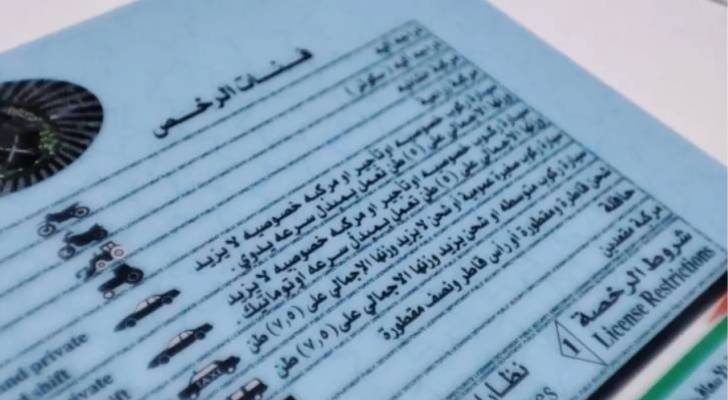 فئات الرخص
دراجة آلية
دراجة آلية (سكوتر)
مركبة إنشائية
مركبة زراعية
سيارة ركوب خصوصية أو تأجير أو مركبة خصوصية لا يزيد
وزنها الإجمالي على (٥) طن تعمل بمبدل سرعة يدوي
سيارة ركوب خصوصية أو تأجير أو مركبة خصوصية لا يزيد
وزنها الإجمالي على (٥) طن تعمل بمبدل سرعة أوتوماتيك
سيارة ركوب صغيرة عمومية أو شحن لا يزيد وزنها الإجمالي على (٧,٥) طن
سيارة ركوب متوسطة أو شحن يزيد وزنها الإجمالي على (٧,٥) طن
شحن قاطرة ومقطورة أو رأس قاطر ونصف مقطورة
حافلة
مركبة مقعدين
شروط الرخصة
License Restrictions
1
TAXI
and private
shift
private
shift